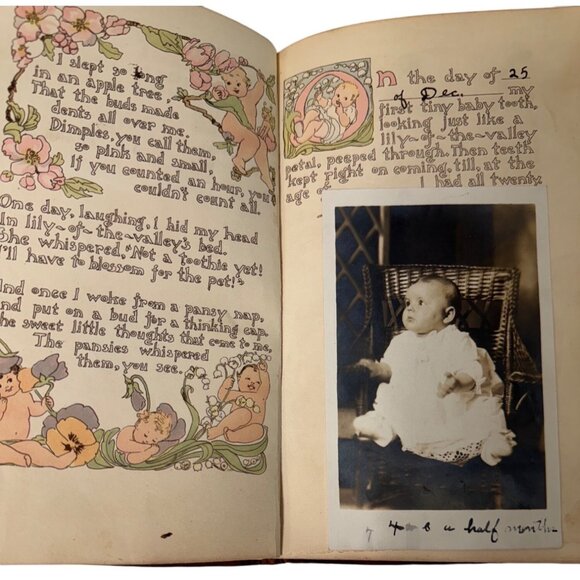 I slept so long
in an apple tree
That the buds made
dents all over me.
Dimples, you call them,
so pink and small,
If you counted an hour, you
couldn't count all.
One day, laughing, I hid my head
In lily-of-the-valley's bed.
She whispered, "Not a toothie yet!
I'll have to blossom for the pet!"
And once I woke from a pansy nap,
and put on a bud for a thinking cap.
The sweet little thoughts that come to me,
The pansies whispered
them, you see.
On the day of 25
of Dec. my
first tiny baby tooth,
looking just like a
lily-of-the-valley
petal, peeped through. Then teeth
kept right on coming, till, at the
age of I had all twenty
4 half months